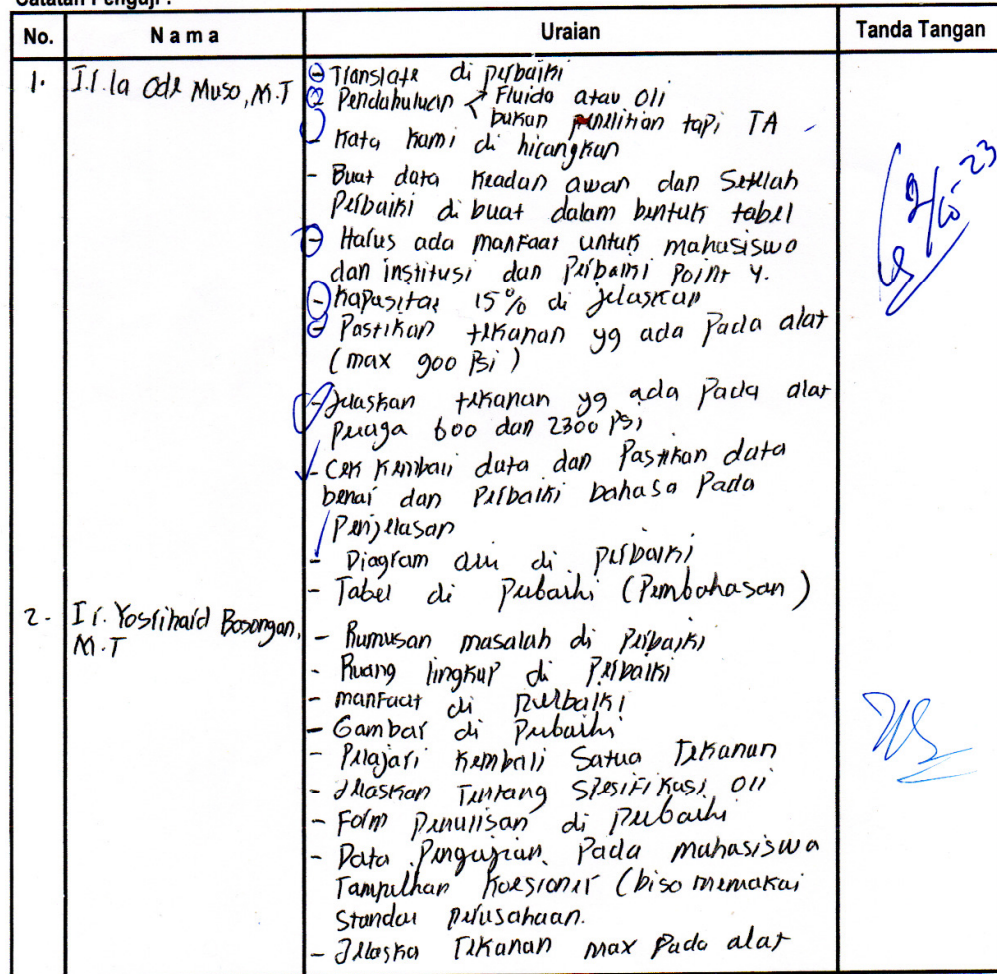 Catatan Penguji :
No. N a m a Uraian Tanda Tangan
1. I.r. la Ode Muso, M.T
- Translate di perbaiki
- Pendahuluan < Fluida atau Oli
bukan penelitian tapi TA
- Kata kami di hilangkan
- Buat data keadan awan dan Setelah
Perbaiki di buat dalam bentuk tabel
- Harus ada manfaat untuk mahasiswa
dan institusi dan Perbaiki Point 4.
- Kapasitas 15% di jelaskan
- Pastikan tekanan yg ada Pada alat
(max 900 Psi)
- Jelaskan tekanan yg ada Pada alat
peraga 600 dan 2300 Psi
- Cek Kembali data dan Pastikan data
benar dan Perbaiki bahasa Pada
Penjelasan
- Diagram alir di perbaiki
- Tabel di Perbaiki (Pembahasan)
2. Ir. Yosrihard Basongan,
M.T
- Rumusan masalah di Perbaiki
- Ruang lingkup di Perbaiki
- manfaat di Perbaiki
- Gambar di Perbaiki
- Pelajari Kembali Satua Tekanan
- Jelaskan Tentang Spesifikasi Oli
- Form Penulisan di Perbaiki
- Data Pengujian Pada mahasiswa
Tampilkan Koesioner (bisa memakai
Standar perusahaan.
- Jelaska Tekanan max Pada alat